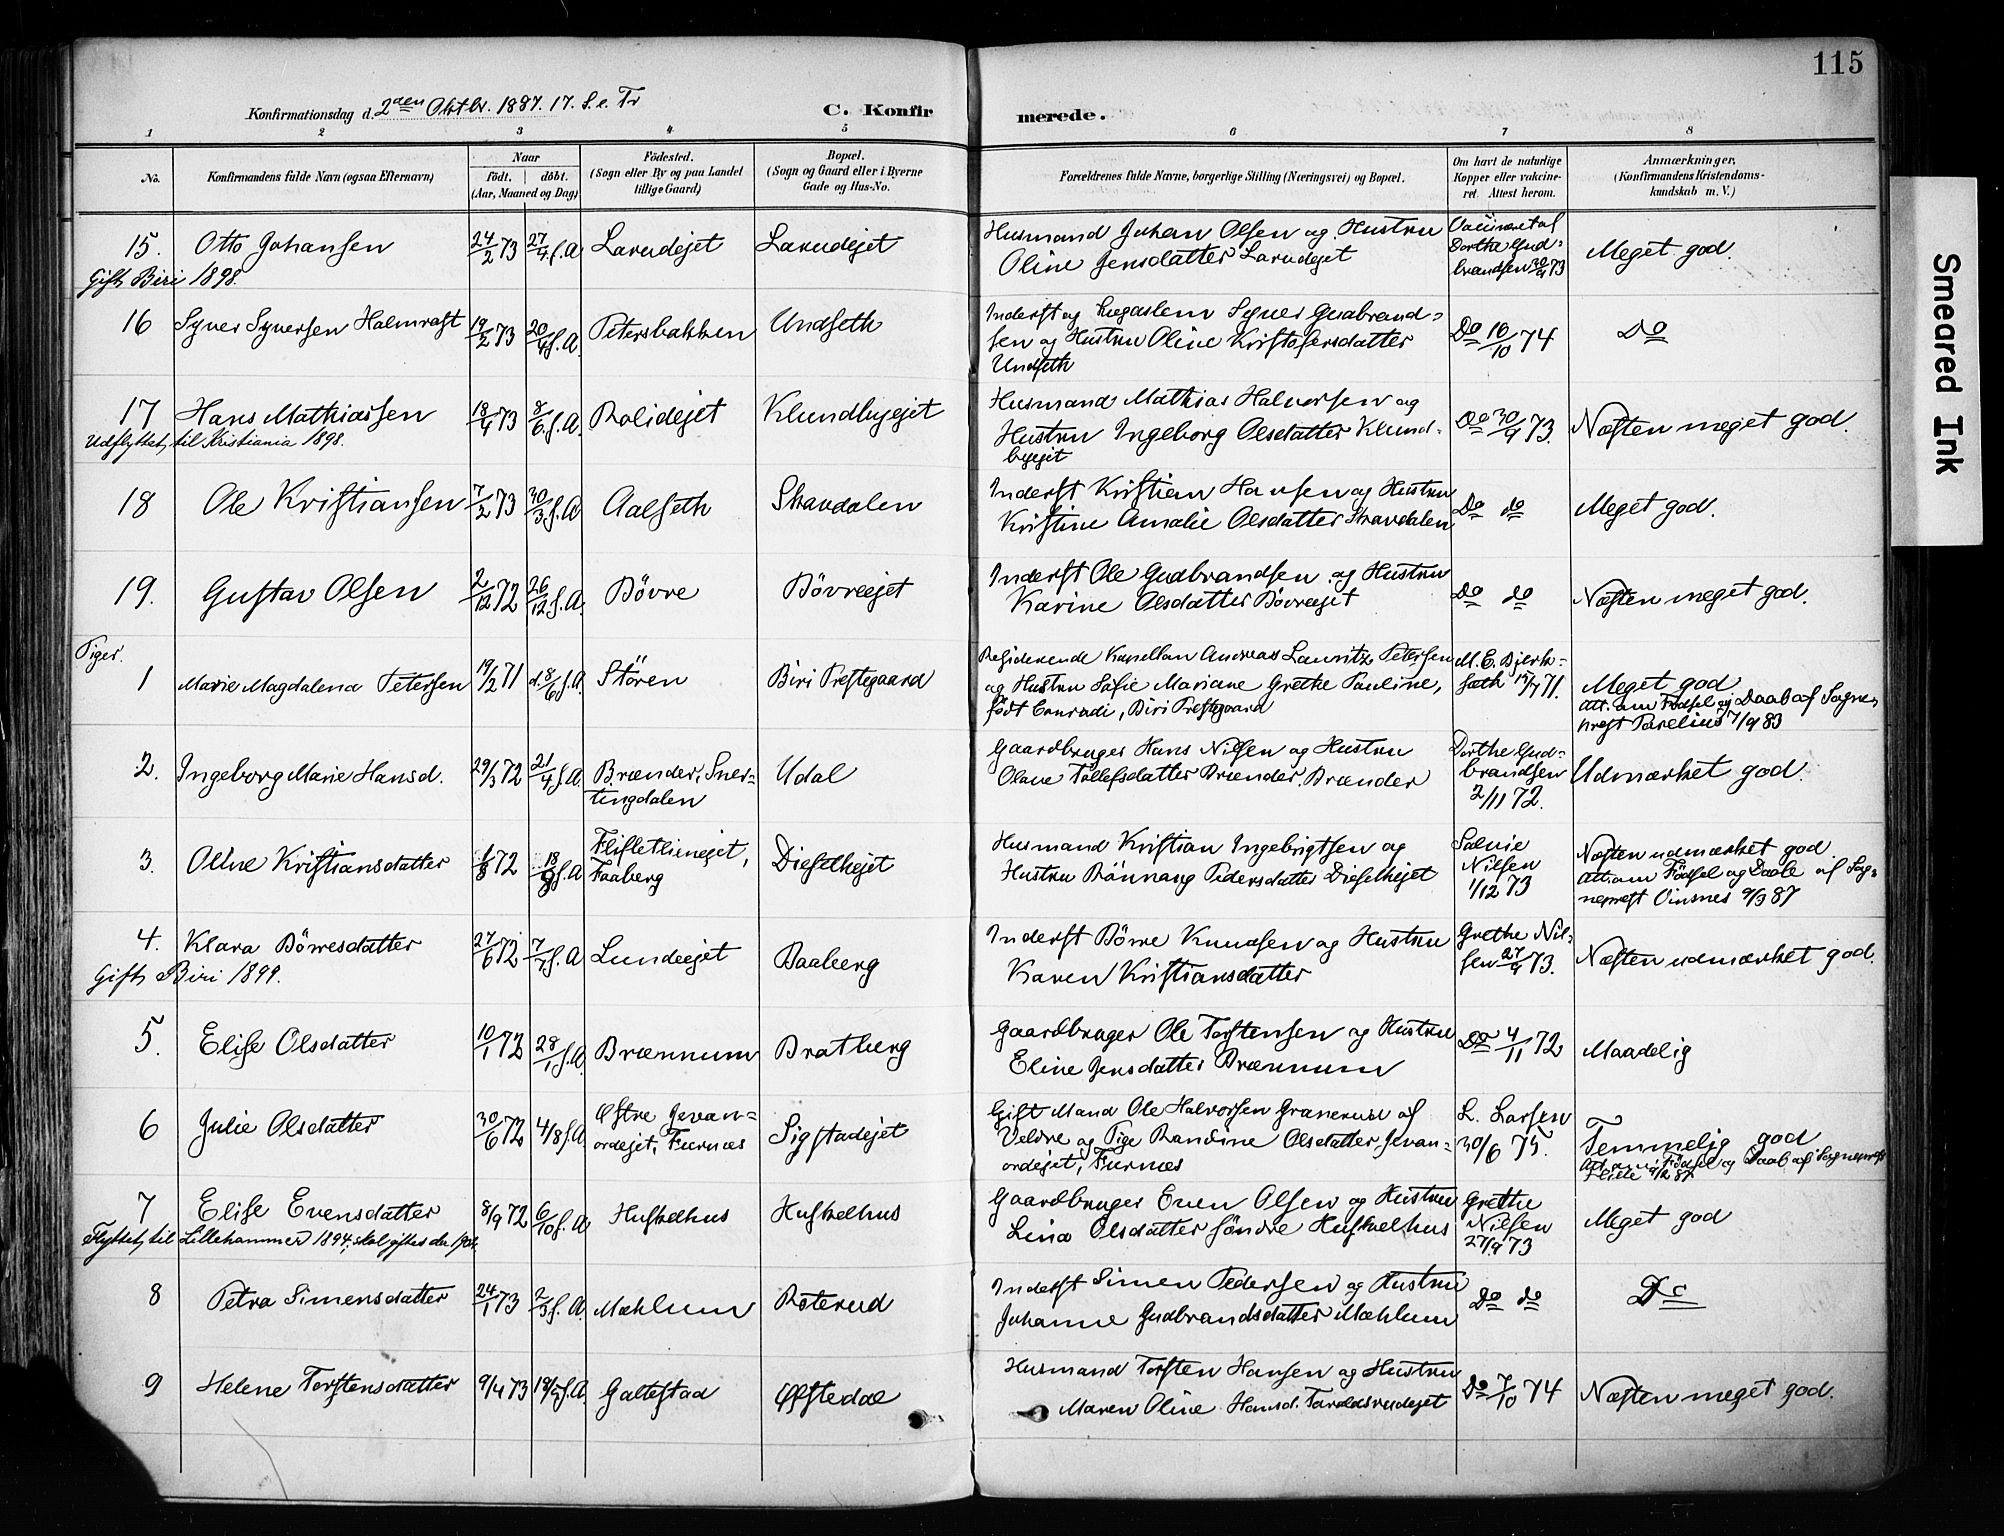 115
Konfirmationsdag d. 2den Oktbr. 1887. 17. S. e. Tr
C. Konfirmerede.
1 2 3 4 5 6 7 8
No.
Konfirmandens fulde Navn (ogsaa Efternavn)
Naar
födt. döbt.
(Aar, Maaned og Dag)
Födested.
(Sogn eller By og paa Landet
tillige Gaard)
Bopæl.
(Sogn og Gaard eller i Byerne
Gade og Hus-No.
Forældrenes fulde Navne, borgerlige Stilling (Næringsvei) og Bopæl.
Om havt de naturlige
Kopper eller vakcine-
ret. Attest herom.
Anmærkninger,
(Konfirmandens Kristendoms-
kundskab m. V.)
15. Otto Johansen 24/2 73 27/4 s.A. Larudejet Larudejet
Husmand Johan Olsen og Hustru
Oline Jensdatter Larudejet
Vaccineret af
Dorthe Gud-
brandsen 30/9 73
Meget god.
Gift Biri 1898.
16 Syver Syversen Halmrast 19/2 73 20/4 s.A. Petersbakken Undseth
Inderst og Syver Gudbrand-
sen og Hustru Oline Kristofersdatter
Undseth
Do 10/10 74 Do
17 Hans Mathiassen 18/4 73 8/6 s.A. Rolidejet Klundbyejet
Husmand Mathias Halvorsen og
Hustru Ingeborg Olsdatter Klund-
byejet
Do 30/9 73. Næsten meget god.
Udflyttet til Kristiania 1898.
18 Ole Kristiansen 7/2 73 30/3 s.A. Aalseth Skavdalen
Inderst Kristian Hansen og Hustru
Kristine Amalie Olsdatter Skavdalen
Do do Meget god.
19. Gustav Olsen 2/12 72 26/12 s.A. Bövre Bövreejet
Inderst Ole Gudbrandsen og Hustru
Karine Olsdatter Bövreejet
Do do Næsten meget god.
Piger.
1 Marie Magdalena Petersen 19/2 71 d. 8/6 s.A. Stören Biri Prestegaard
Residerende Kapellan Andreas Lauritz Petersen
og Hustru Sofie Mariane Grethe Pauline,
født Conradi, Biri Prestegaard
M. E. Bjerk-
sæth 19/7 71.
Meget god
Att. om Födsel og Daab af Sogne-
prest Parelius 17/9 83
2. Ingeborg Marie Hansd. 29/3 72 21/4 s.A. Brænder, Sner-
tingdalen Udal
Gaardbruger Hans Nilsen og Hustru
Olave Tollefsdatter Brænder. Brænder
Dorthe Gud-
brandsen
2/11 72.
Udmærket god.
3. Oline Kristiansdatter 1/8 72 18/8 s.A. Flisletlienejet,
Faaberg Dieselhejet
Husmand Kristian Ingebrigtsen og
Hustru Rönnaug Pedersdatter Dieselhejet
Salvie
Nilsen
1/12 73
Næsten udmærket god
Att. om Födsel og Daab af Sog-
neprest Vinsnes 9/3 87
4. Klara Börresdatter 27/6 72 7/7 s.A. Lundeejet Baaberg
Inderst Börre Knudsen og Hustru
Karen Kristiansdatter
Grethe Nil-
sen 27/9 73.
Næsten udmærket god.
Gift Biri 1899.
5. Elise Olsdatter 10/1 72 28/1 s.A. Brænnum Bratberg
Gaardbruger Ole Torstensen og Hustru
Eline Jensdatter Brænnum
Do 4/11 72 Maadelig
6 Julie Olsdatter 30/6 72 4/8 s.A. Østre Jevan-
ordejet, Furnæs Sigstadejet
Gift Mand Ole Halvorsen Granerud af
Veldre og Pige Randine Olsdatter Jevan-
ordejet, Furnæs
L. Larsen
30/6 75.
Temmelig god
Att. om Födsel og Daab af Sogneprest
7 Elise Evensdatter 8/9 72 6/10 s.A. Huskelhus Huskelhus
Gaardbruger Even Olsen og Hustru
Lina Olsdatter söndre Huskelhus
Grethe
Nilsen
27/9 73
Meget god
Flyttet til Lillehammer 1894, skal giftes der
8 Petra Simensdatter 24/1 73 2/3 s.A. Mæhlum Roterud
Inderst Simen Pedersen og Hustru
Johanne Gudbrandsdatter Mæhlum
Do do Do
9 Helene Torstensdatter 9/4 73 19/5 s.A. Galtestad Øfstedal
Husmand Torsten Hansen og Hustru
Maren Oline Hansd. Taraldsrudejet
Do 7/10 74 Næsten meget god.
Smeared Ink